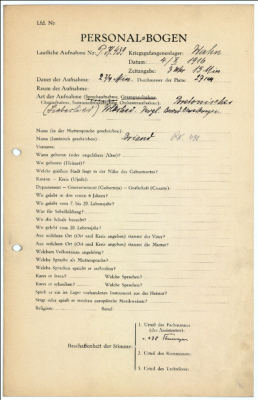 Lfd. Nr.
PERSONAL-BOGEN
Lautliche Aufnahme Nr.: P.K. 439 Kriegsgefangenenlager: Wahn
Datum: 4/X 1916
Zeitangabe: 3 Uhr 15 Min
Dauer der Aufnahme: 2 3/4 Min. Durchmesser der Platte: 27 cm
Raum der Aufnahme:
Art der Aufnahme (Sprechaufnahme, Gesangsaufnahme,
Choraufnahme, Instrumentenaufnahme, Orchesteraufnahme): Bretonisches
Name (in der Muttersprache geschrieben):
Name (lateinisch geschrieben): Briand
Vorname:
Wann geboren (oder ungefähres Alter)?
Wo geboren (Heimat)?
Welche größere Stadt liegt in der Nähe des Geburtsortes?
Kanton - Kreis (Ujedh):
Departement - Gouvernement (Gubernija) - Grafschaft (County):
Wo gelebt in den ersten 6 Jahren?
Wo gelebt vom 7. bis 20. Lebensjahr?
Was für Schulbildung?
Wo die Schule besucht?
Wo gelebt vom 20. Lebensjahr?
Aus welchem Ort (Ort und Kreis angeben) stammt der Vater?
Aus welchem Ort (Ort und Kreis angeben) stammt die Mutter?
Welchem Volksstamm angehörig?
Welche Sprache als Muttersprache?
Welche Sprachen spricht er außerdem?
Kann er lesen? Welche Sprachen?
Kann er schreiben? Welche Sprachen?
Spielt er ein im Lager vorhandenes Instrument aus der Heimat?
Singt oder spielt er modern europäische Musikweisen?
Religion: Beruf:
1. Urteil des Fachmannes
(des Assistenten):
Beschaffenheit der Stimme:
2. Urteil des Kommissars:
3. Urteil des Technikers: